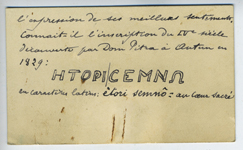 l'expression de ses meilleurs sentiments.
Connait-il l'inscription du IVe siècle
découverte par Dom Pitra à Autun en
1839:
ΗΤΟΡΙ СΕΜΝΩ
en caractères latins: êtori semnô = au cœur sacré